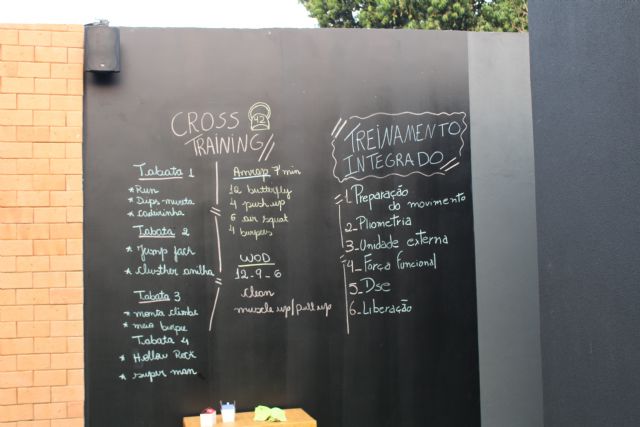 CROSS
TRAINING
12
Tabata 1
* Run
* Dips-mureta
* cadeirinha
Tabata 2
* Jump jack
* clusther anilha
Tabata 3
* monta climbe
* meio burpee
Tabata 4
* Hollow Rock
* super man
Amrap 7 min
12 butterfly
4 push up
6 air squat
4 burpees
WOD
12-9-6
clean
muscle up/pull ups
TREINAMENTO
INTEGRADO
1. Preparação
do movimento
2- Pliometria
3- Unidade externa
4- Força funcional
5- Dse
6- Liberação